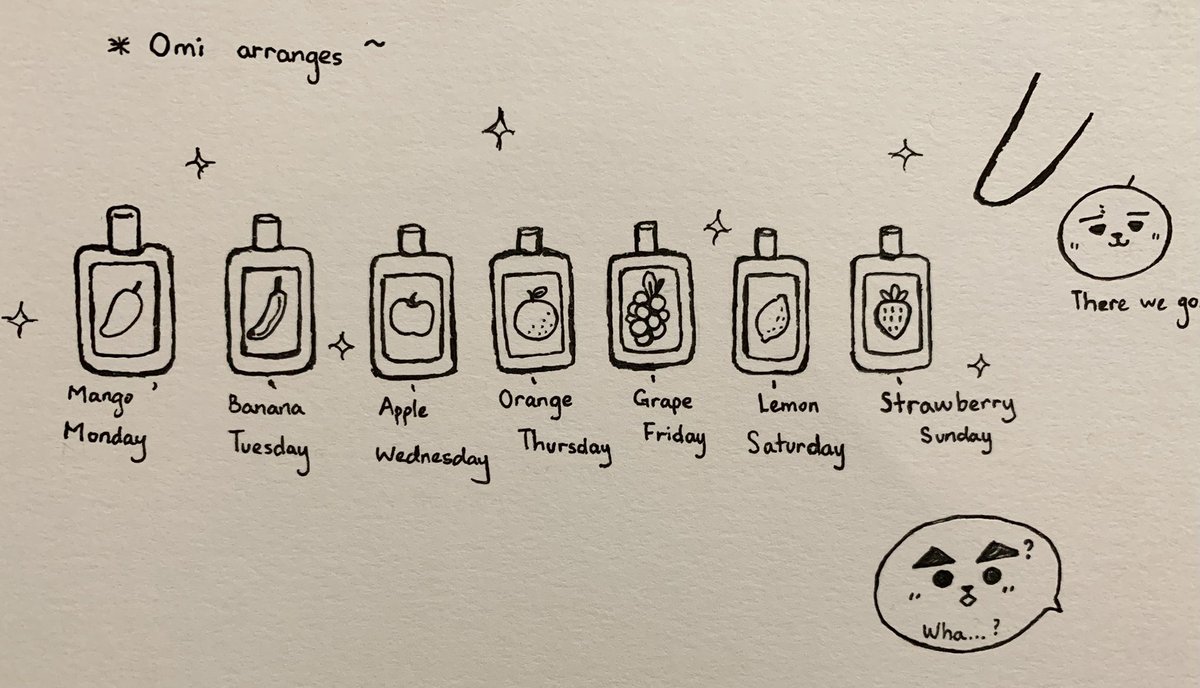 * Omi arranges ~
There we go
Mango
Monday
Banana
Tuesday
Apple
Wednesday
Orange
Thursday
Grape
Friday
Lemon
Saturday
Strawberry
Sunday
?
Wha...?